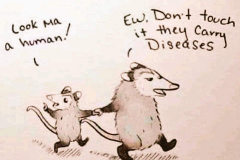 Look Ma
a human!
Ew. Don't touch
it they Carry
Diseases